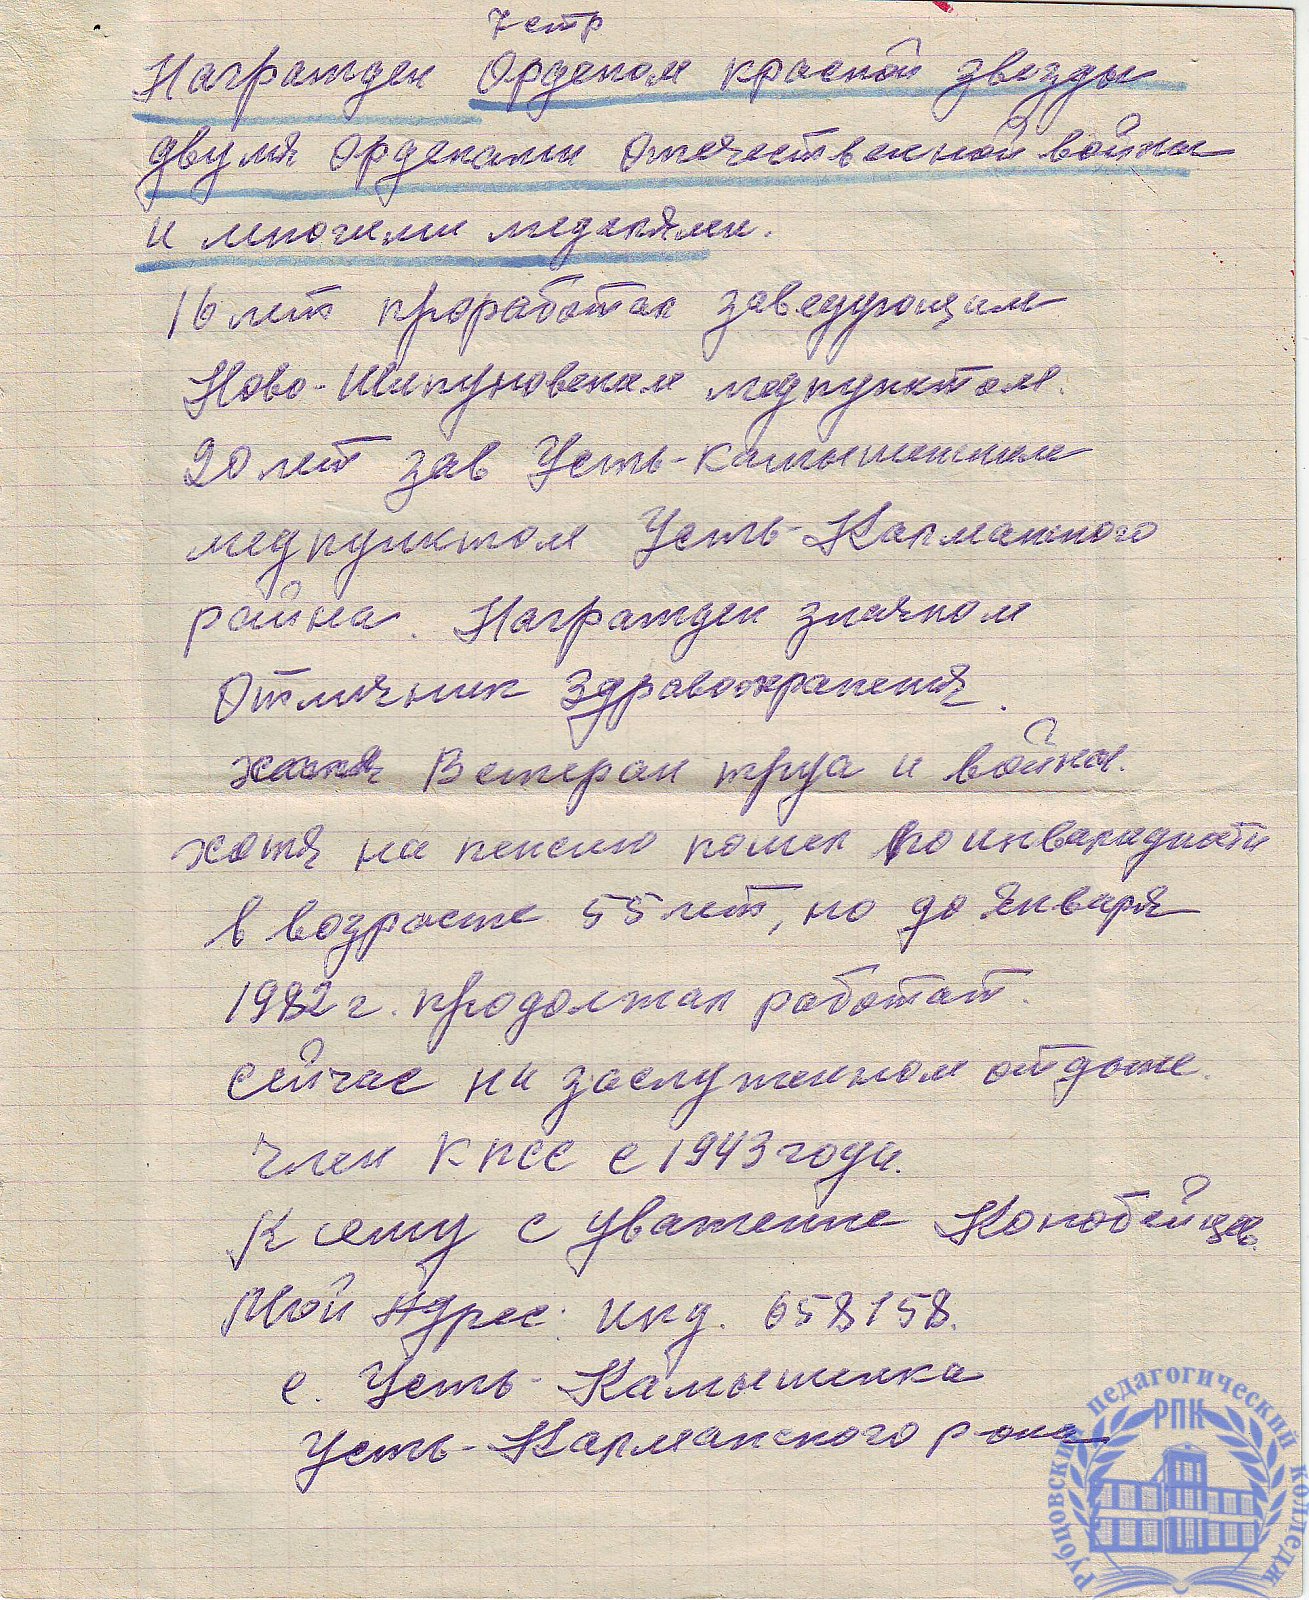 7 стр
Награжден Орденом красной звезды
двумя орденами Отечественной войны
и многими медалями.
16 лет проработал заведующим
Ново-Шипуновским медпунктом.
20 лет зав Усть-Камышенским
медпунктом Усть-Калманского
района. Награжден значком
Отличник Здравоохранения.
Ветеран труа и войны.
хотя на пенсию пошел по инвалидности
в возрасте 55 лет, но до января
1982 г. продолжал работат.
сейчас на заслуженном отдыхе.
член КПСС с 1943 года.
К сему с уважение Конобейцев.
Мой Адрес: инд. 658158.
с. Усть-Камышенка
Усть-Калманского р-она
Рубцовский педагогический колледж
РПК